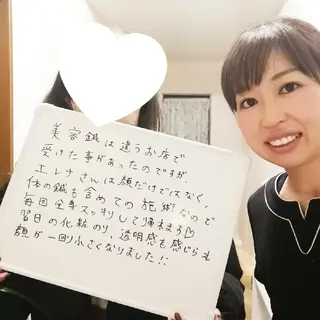 美容鍼は違うお店で
受けた事があったのですが、
エレナさんは顔だけではなく、
体の鍼も含めての施術なので
毎回全身スッキリして帰れます♡
翌日の化粧のり、透明感も感じられ
顔が一回り小さくなりました!!